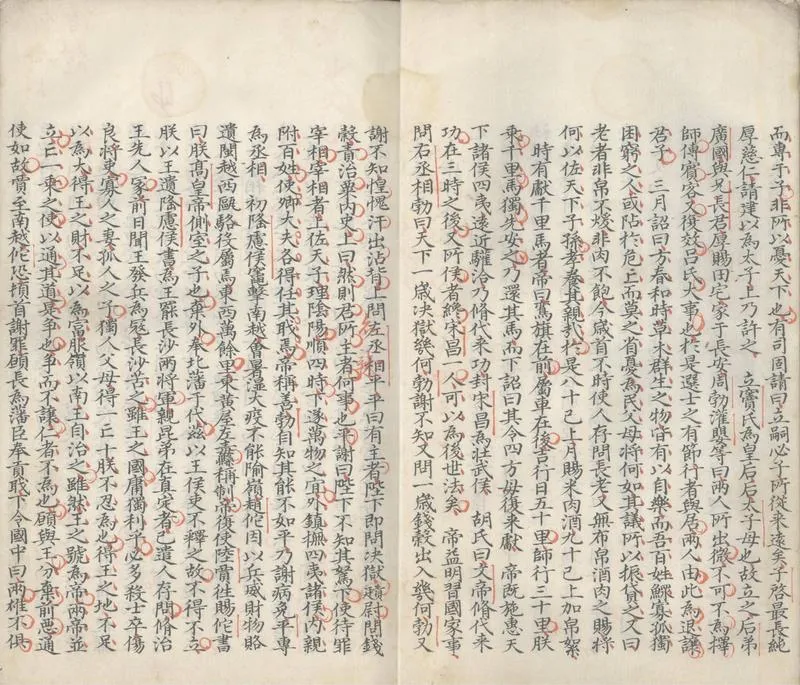 而專于子非所以憂天下也有司固請曰立嗣必子所從來遠矣子啓最長純
厚慈仁請建以為太子上乃許之 立竇氏為皇后后太子母也故立之后弟
廣國與兄長君厚賜田宅家于長安周勃灌嬰等曰兩人所出微不可不為擇
師傅賓客又復效吕氏大事也於是選士之有節行者與居兩人由此為退讓
君子 三月詔曰方春和時草木群生之物皆有以自樂而吾百姓鰥寡孤獨
困窮之人或阽於危亡而莫之省憂為民父母將何如其議所以振貸之又曰
老者非帛不煖非肉不飽今歲首不時使人存問長老又無布帛酒肉之賜將
何以佐天下子孫孝養其親哉於是八十已上月賜米肉酒九十已上加帛絮
時有獻千里馬者帝曰鸞旗在前屬車在後吉行日五十里師行三十里朕
乘千里馬獨先安之乃還其馬而下詔曰其令四方毋復來獻 帝既施惠天
下諸侯四夷遠近驩洽乃脩代來功封宋昌為壯武侯 胡氏曰文帝脩代來
功在三時之後又所侯者終宋昌一人可以為後世法矣 帝益明習國家事
問右丞相勃曰天下一歲決獄幾何勃謝不知又問一歲錢穀出入幾何勃又
謝不知惶愧汗出沾背上問左丞相平平曰有主者陛下即問決獄責廷尉問錢
穀責治粟內史上曰然則君所主者何事也平謝曰陛下不知其駑下使待罪
宰相宰相者上佐天子理陰陽順四時下遂萬物之宜外鎮撫四夷諸侯內親
附百姓使卿大夫各得任其職焉帝稱善勃自知其能不如平乃謝病免平專
為丞相 初隆慮侯竈擊南越會暑濕大疫不能隃嶺趙佗因以兵威財物賂
遺閩越西甌駱役屬焉東西萬餘里乘黃屋左纛稱制帝復使陸賈往賜佗書
曰朕高皇帝側室之子也棄外奉北藩于代玆以王侯吏不釋之故不得不立
朕以王遺隆慮侯書為王罷長沙兩將軍親昆弟在真定者已遣人存問脩治
王先人冢前日聞王發兵為寇長沙苦之雖王之國庸獨利乎必多殺士卒傷
良將吏寡人之妻孤人之子獨人父母得一亡十朕不忍為也得王之地不足
以為大得王之財不足以為富服嶺以南王自治之雖然王之號為帝兩帝並
立亡一乘之使以通其道是爭也爭而不讓仁者不為也願與王分棄前惡通
使如故賈至南越佗恐頓首謝罪願長為藩臣奉貢職下令國中曰兩雄不俱